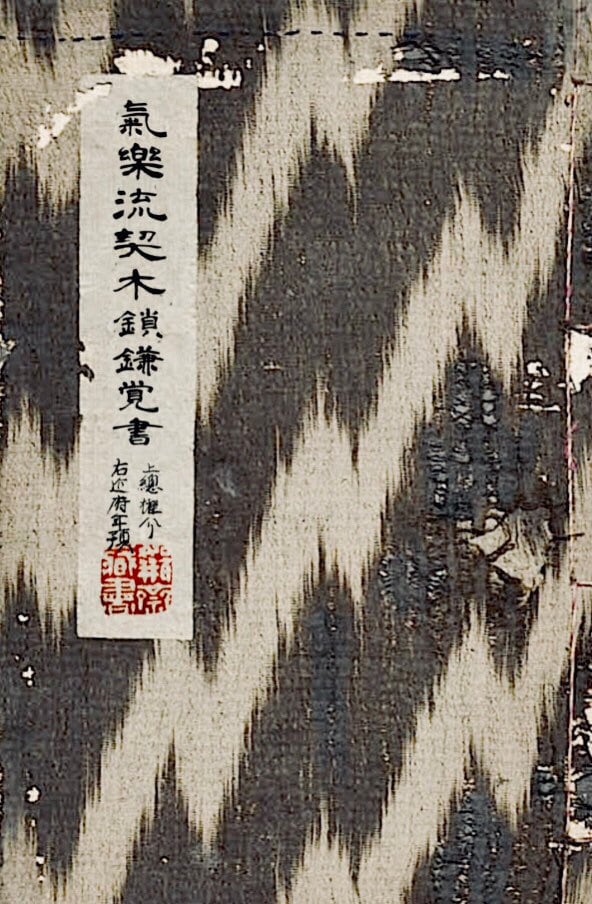 氣樂流契木鎖鎌覚書
上總
右近府年預